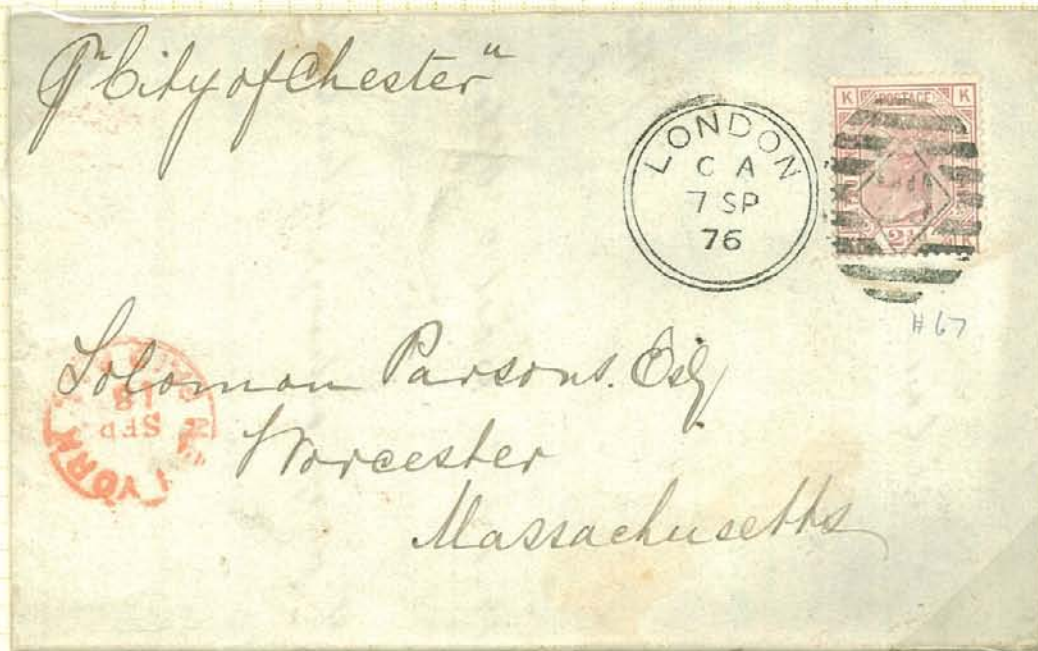 p "City of Chester"
LONDON
C A
7 SP
76
K POSTAGE K
2½
#67
Solomon Parsons. Esq
Worcester
Massachusetts
YORK
SEP
18